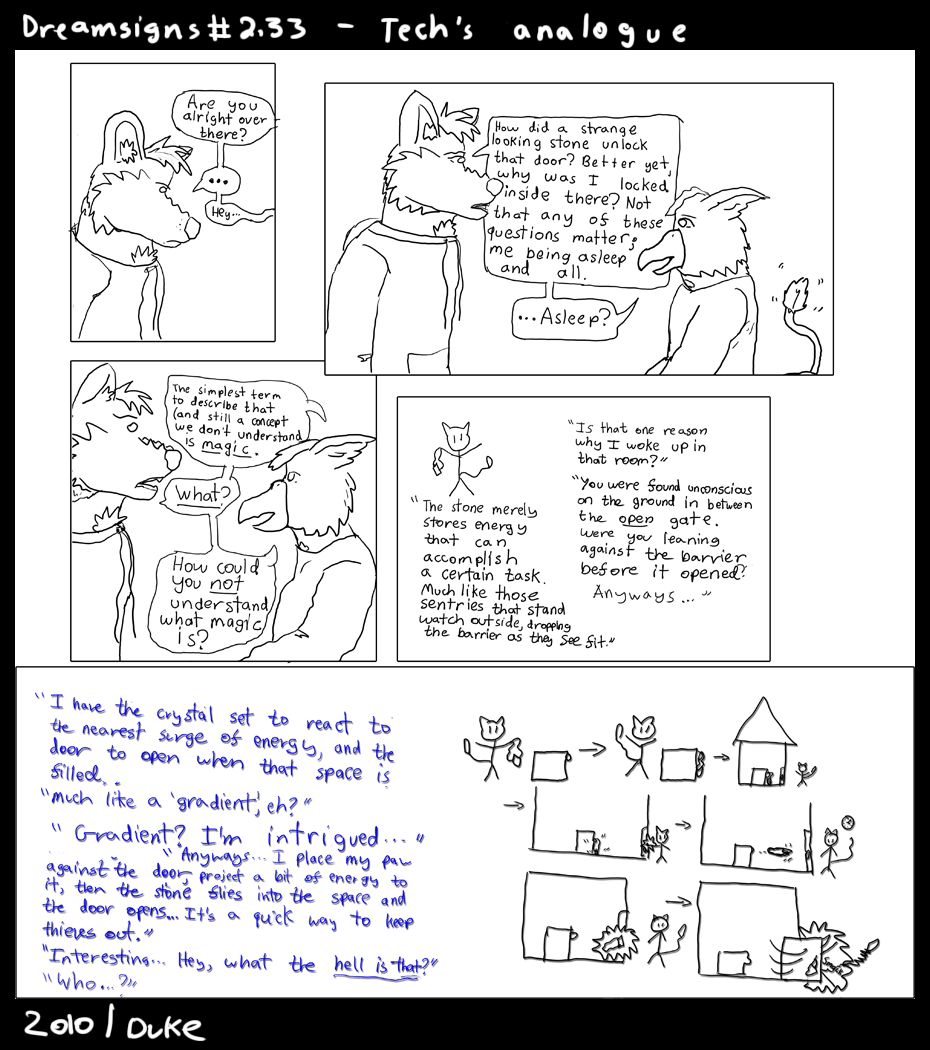 Dreamsigns#2.33 - Tech's analogue
Are you
alright over
there?
...
Hey...
How did a strange
looking stone unlock
that door? Better yet,
why was I locked
inside there? Not
that any of these
questions matter;
me being asleep
and all.
...Asleep?
The simplest term
to describe that
(and still a concept
we don't understand
is magic.
What?
How could
you not
understand
what magic
is?
"The stone merely
stores energy
that can
accomplish
a certain task.
Much like those
sentries that stand
watch outside, dropping
the barrier as they see fit."
"Is that one reason
why I woke up in
that room?"
"You were found unconscious
on the ground in between
the open gate.
Were you leaning
against the barrier
before it opened?
Anyways..."
"I have the crystal set to react to
the nearest surge of energy, and the
door to open when that space is
filled..
"Much like a 'gradient', eh?"
"Gradient? I'm intrigued..."
"Anyways... I place my paw
against the door, project a bit of energy to
it, then the stone flies into the space and
the door opens... It's a quick way to keep
thieves out."
"Interesting... Hey, what the hell is that?"
"Who...?"
2010/Duke